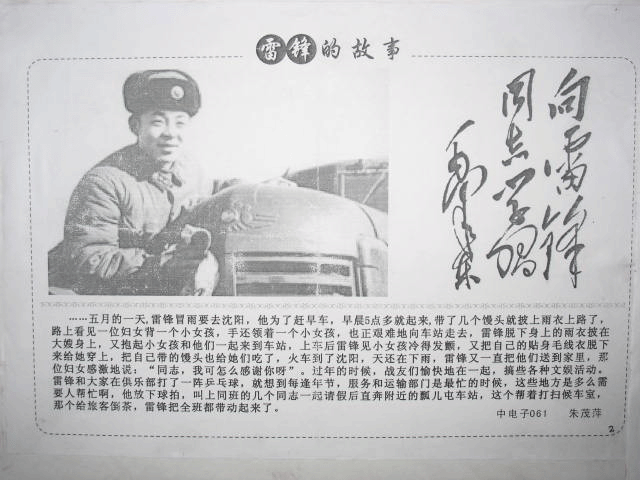 雷锋的故事
向雷锋
同志学习
毛泽东
……五月的一天,雷锋冒雨要去沈阳，他为了赶早车，早晨5点多就起来,带了几个馒头就披上雨衣上路了，
路上看见一位妇女背一个小女孩，手还领着一个小女孩，也正艰难地向车站走去，雷锋脱下身上的雨衣披在
大嫂身上，又抱起小女孩和他们一起来到车站，上车后雷锋见小女孩冷得发颤，又把自己的贴身毛线衣脱下
来给她穿上，把自己带的馒头也给她们吃了，火车到了沈阳，天还在下雨，雷锋又一直把他们送到家里，那
位妇女感激地说：“同志，我可怎么感谢你呀”。过年的时候，战友们愉快地在一起，搞些各种文娱活动。
雷锋和大家在俱乐部打了一阵乒乓球，就想到每逢年节，服务和运输部门是最忙的时候，这些地方是多么需
要人帮忙啊，他放下球拍，叫上同班的几个同志一起请假后直奔附近的瓢儿屯车站，这个帮着打扫候车室，
那个给旅客倒茶，雷锋把全班都带动起来了。
中电子061 朱茂萍
2